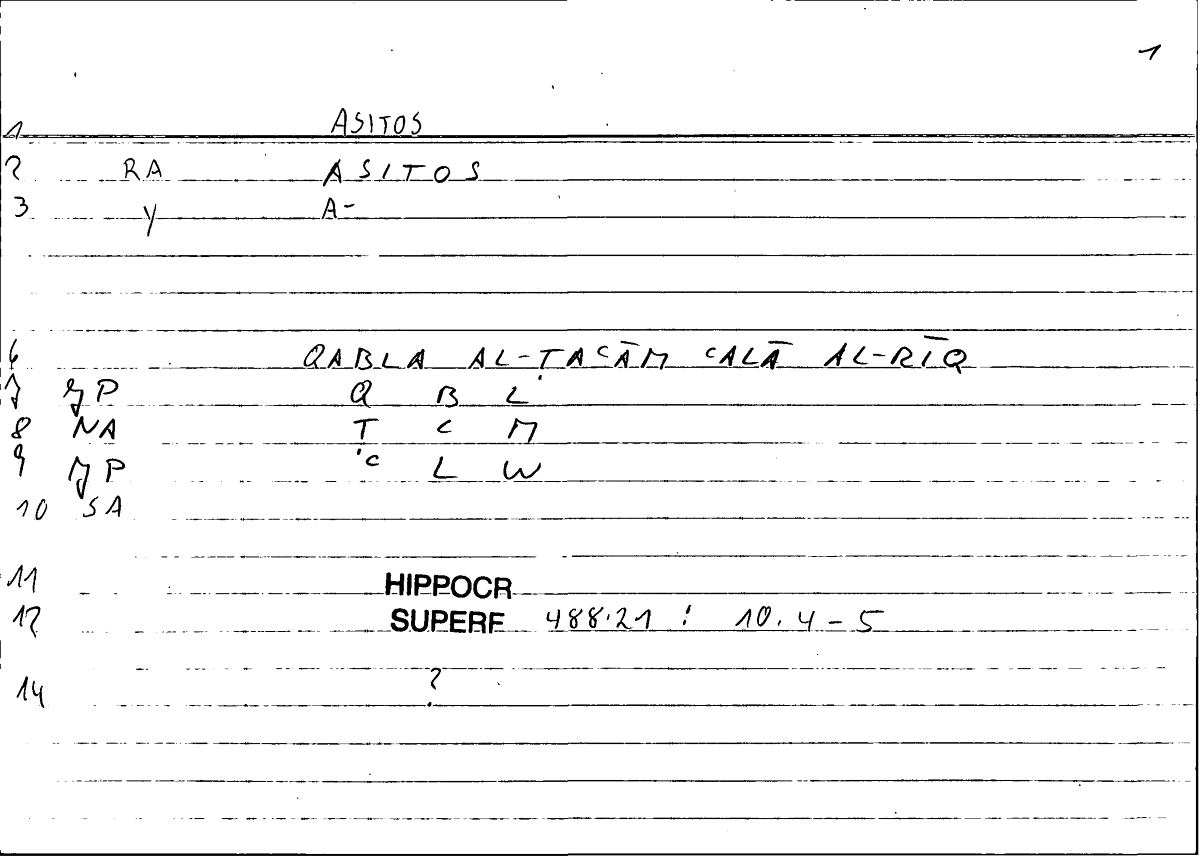 1
1 ASITOS
2 RA ASITOS
3 Y A-
6 QABLA AL-ṬACĀM CALĀ AL-RĪQ
7 P Q B L
8 NA Ṭ C M
9 P C L W
10 SA
11 HIPPOCR
12 SUPERF 488.21 : 10.4-5
14 ?